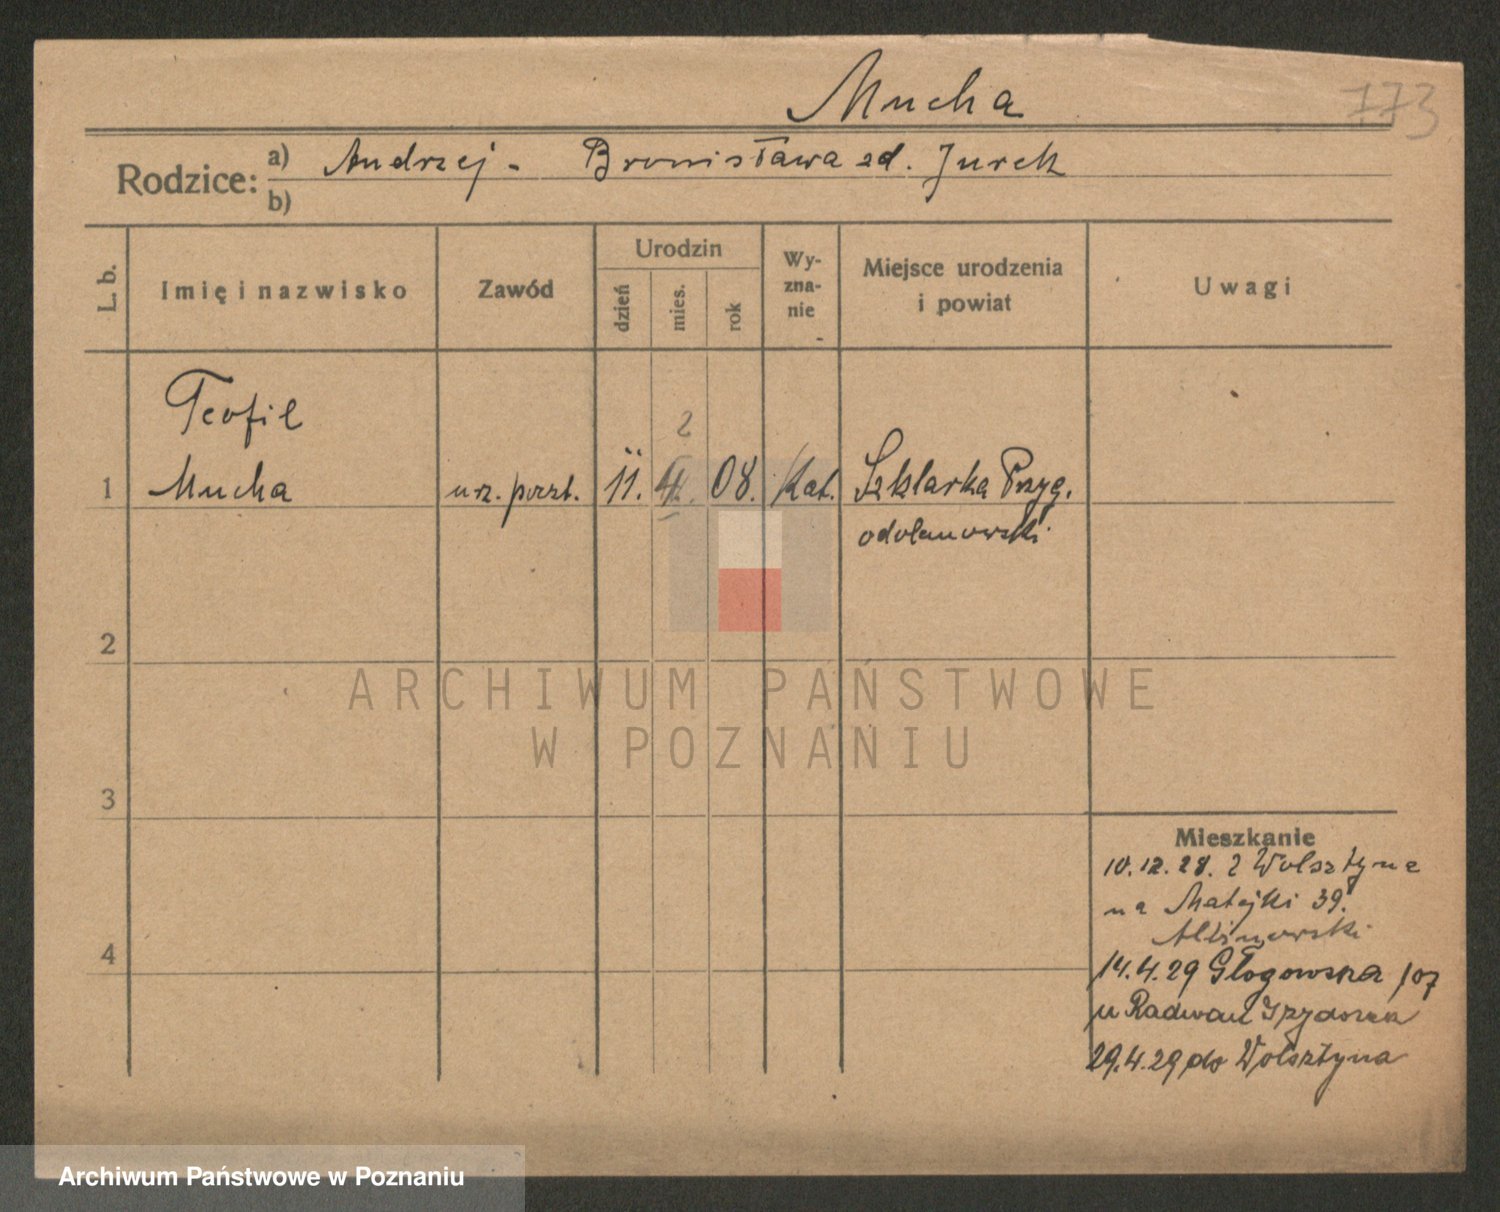 Mucha
773
Rodzice: a) Andrzej - Bronisława zd. Jurek
b)
L. b.
Imię i nazwisko
Zawód
Urodzin
dzień
mies.
rok
Wy-
zna-
nie
Miejsce urodzenia
i powiat
Uwagi
Teofil
2
1 Mucha urz. poczt. 11. 4. 08. Kat. Szklarka Przyg.
odolanowski
2
ARCHIWUM PAŃSTWOWE
W POZNANIU
3
Mieszkanie
10.12.28. z Wolsztyna
na Matejki 39.
4
14.4.29 Głogowska 107
u Radwan
29.4.29 do Wolsztyna
Archiwum Państwowe w Poznaniu